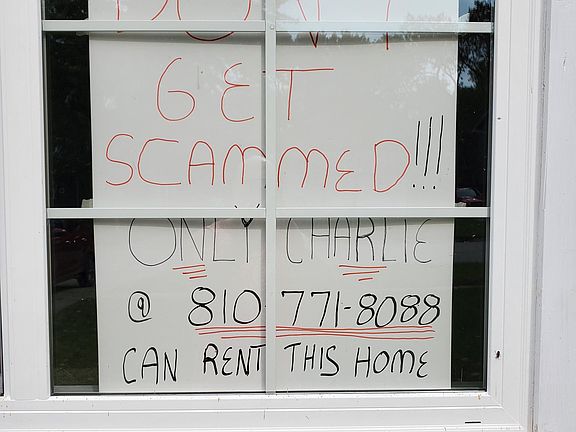 DON'T
GET
SCAMMED!!!
ONLY CHARLIE
@ 810 771-8088
CAN RENT THIS HOME